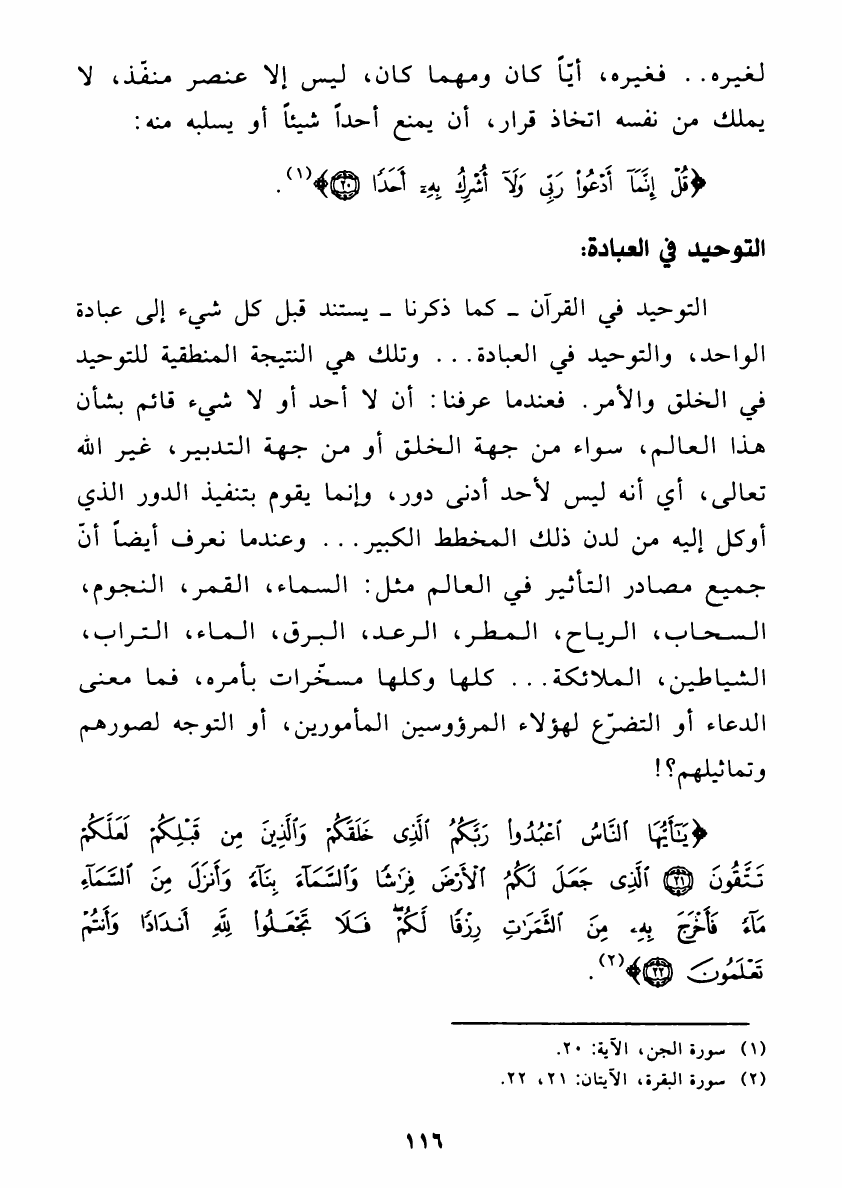 لغيره.. فغيره، أيّاً كان ومهما كان، ليس إلا عنصر منفّذ، لا
يملك من نفسه اتخاذ قرار، أن يمنع أحداً شيئاً أو يسلبه منه:
﴿قُلْ إِنَّمَآ أَدْعُوا۟ رَبِّى وَلَآ أُشْرِكُ بِهِۦٓ أَحَدًا ٢٠﴾(١).
التوحيد في العبادة:
التوحيد في القرآن - كما ذكرنا - يستند قبل كل شيء إلى عبادة
الواحد، والتوحيد في العبادة... وتلك هي النتيجة المنطقية للتوحيد
في الخلق والأمر. فعندما عرفنا: أن لا أحد أو لا شيء قائم بشأن
هذا العالم، سواء من جهة الخلق أو من جهة التدبير، غير الله
تعالى، أي أنه ليس لأحد أدنى دور، وإنما يقوم بتنفيذ الدور الذي
أوكل إليه من لدن ذلك المخطط الكبير... وعندما نعرف أيضاً أنّ
جميع مصادر التأثير في العالم مثل: السماء، القمر، النجوم،
السحاب، الرياح، المطر، الرعد، البرق، الماء، التراب،
الشياطين، الملائكة... كلها وكلها مسخّرات بأمره، فما معنى
الدعاء أو التضرّع لهؤلاء المرؤوسين المأمورين، أو التوجه لصورهم
وتماثيلهم؟!
﴿يَـٰٓأَيُّهَا ٱلنَّاسُ ٱعْبُدُوا۟ رَبَّكُمُ ٱلَّذِى خَلَقَكُمْ وَٱلَّذِينَ مِن قَبْلِكُمْ لَعَلَّكُمْ
تَتَّقُونَ ٢١ ٱلَّذِى جَعَلَ لَكُمُ ٱلْأَرْضَ فِرَٰشًا وَٱلسَّمَآءَ بِنَآءً وَأَنزَلَ مِنَ ٱلسَّمَآءِ
مَآءً فَأَخْرَجَ بِهِۦ مِنَ ٱلثَّمَرَٰتِ رِزْقًا لَّكُمْ ۖ فَلَا تَجْعَلُوا۟ لِلَّهِ أَندَادًا وَأَنتُمْ
تَعْلَمُونَ ٢٢﴾(٢).
(١) سورة الجن، الآية: ٢٠.
(٢) سورة البقرة، الآيتان: ٢١، ٢٢.
١١٦